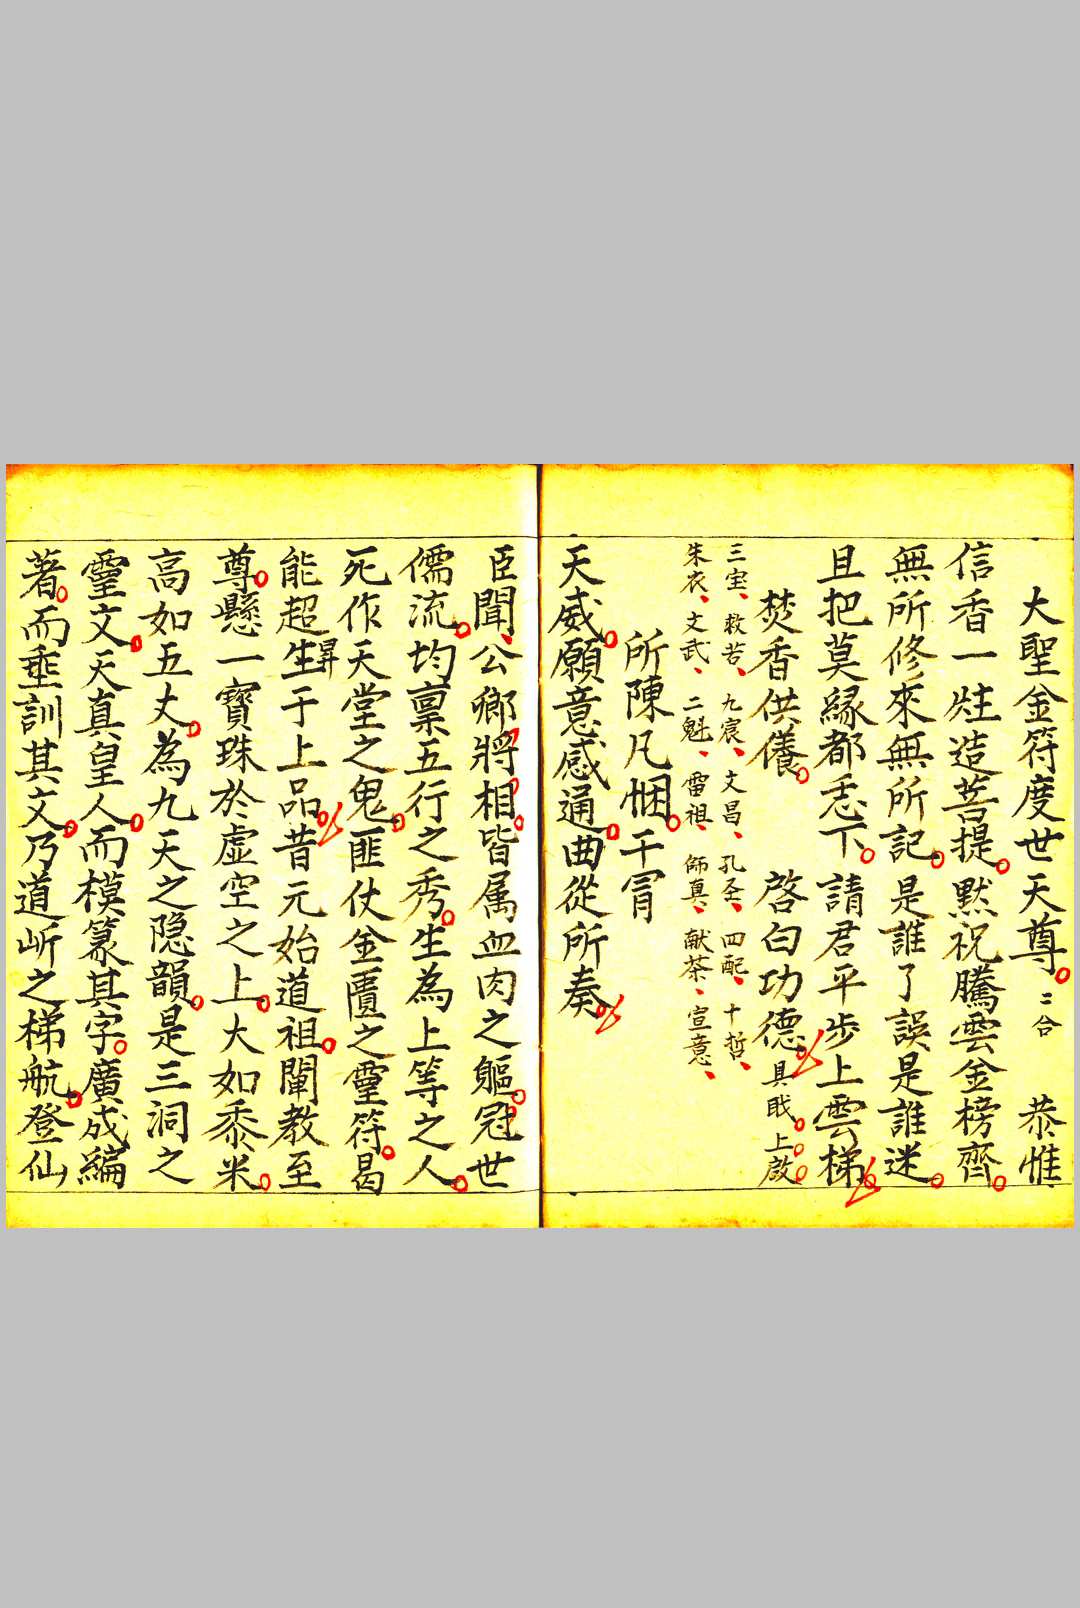 大聖金符度世天尊 二合 恭惟
信香一炷造菩提默祝騰雲金榜齊
無所修來無所記是誰了誤是誰迷
且把莫緣都丢下請君平步上雲梯
焚香供養 啓白功德具戝上啟
三宝救苦九宸文昌孔圣四配十哲
朱衣文武二魁雷祖師真献茶宣意
所陳凡悃干冒
天威願意感通曲從所奏
臣聞公鄉將相皆属血肉之軀冠世
儒流均禀五行之秀生為上等之人
死作天堂之鬼匪仗金匱之靈符曷
能超生昇于上品昔元始道祖闡教至
尊懸一寳珠於虛空之上大如黍米
高如五丈為九天之隐韻是三洞之
靈文天真皇人而模篆其字廣成編
著而垂訓其文乃道岸之梯航登仙